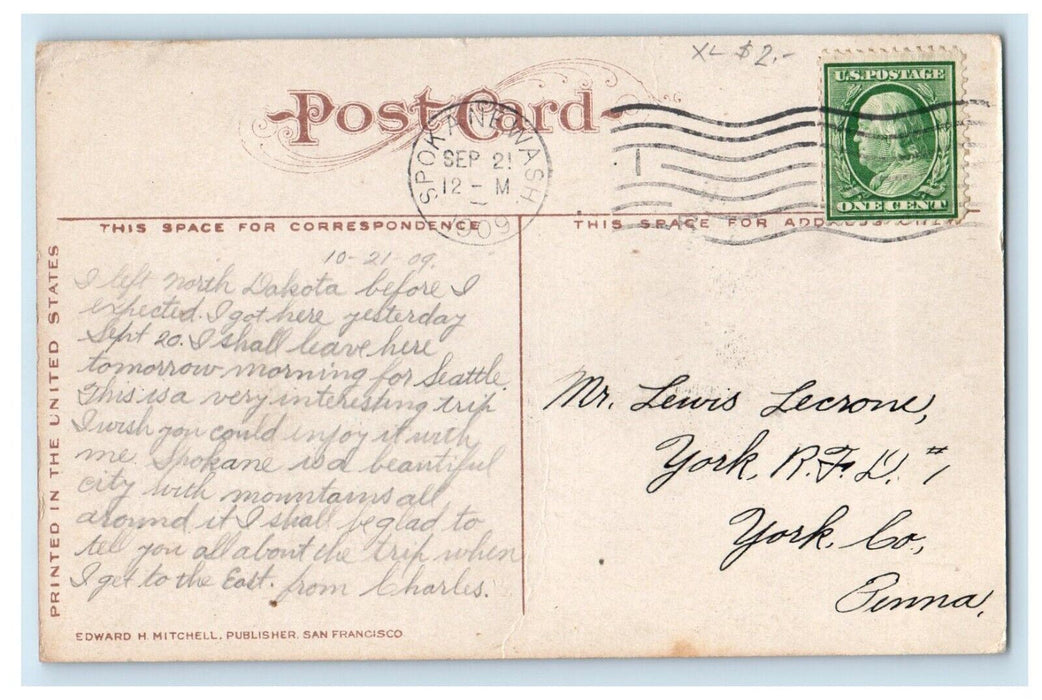 XL $2.-
Post Card
U.S. POSTAGE
ONE CENT
SPOKANE, WASH.
SEP 21
12 - M
1909
1
THIS SPACE FOR CORRESPONDENCE
THIS SPACE FOR ADDRESS ONLY
PRINTED IN THE UNITED STATES
10-21-09.
I left North Dakota before I
expected. I got here yesterday
Sept 20. I shall leave here
tomorrow morning for Seattle.
This is a very interesting trip
I wish you could enjoy it with
me. Spokane is a beautiful
city with mountains all
around it I shall be glad to
tell you all about the trip when
I get to the East. from Charles.
Mr. Lewis Lecrone,
York, R.F.D. #1
York, Co,
Penna,
EDWARD H. MITCHELL, PUBLISHER, SAN FRANCISCO